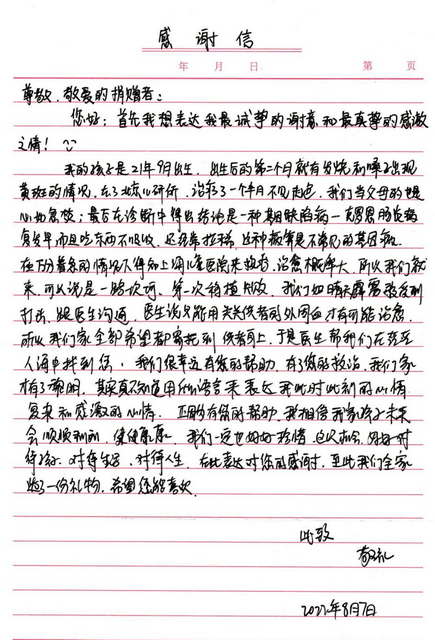 感谢信
年 月 日 第 页
尊敬、敬爱的捐赠者：
您好：首先我想表达我最诚挚的谢意和最真挚的感激
之情！
我的孩子是21年9月出生，出生后的第二个月就有发烧和嗓子出现
黄斑的情况，在了 治疗了一个半月不见 我们当父母的也
心 最后在诊断中得出结论是一种基因缺陷病
而且吃东西不吸收，还经常拉稀，这种病算是不常见的基因病，
在万分着急的情况下得知上海儿童医院来 治愈概率大，所以我们就
来，可以说是一路坎坷，第一次移植失败，我们如晴天霹雳
打击，跟医生沟通，医生说只能用 供者的外周血才有可能治愈，
所以我们家全部希望都寄托到供者身上，于是医生帮我们在茫茫
人海中找到您，我们很幸运有您的帮助，有了您的救治，我们家
才有了 其实真不知道用什么语言来表达我此时此刻的心情
和感激的心情。正因为有您的帮助，我相信我家孩子未来
会顺顺利利，健健康康，我们一定也好好珍惜这次机会，好好对
待孩子，对待生活，对待人生，在此表达对您的感谢，至此我们全家
一份礼物，希望您能喜欢
此致
敬礼
2022年8月7日